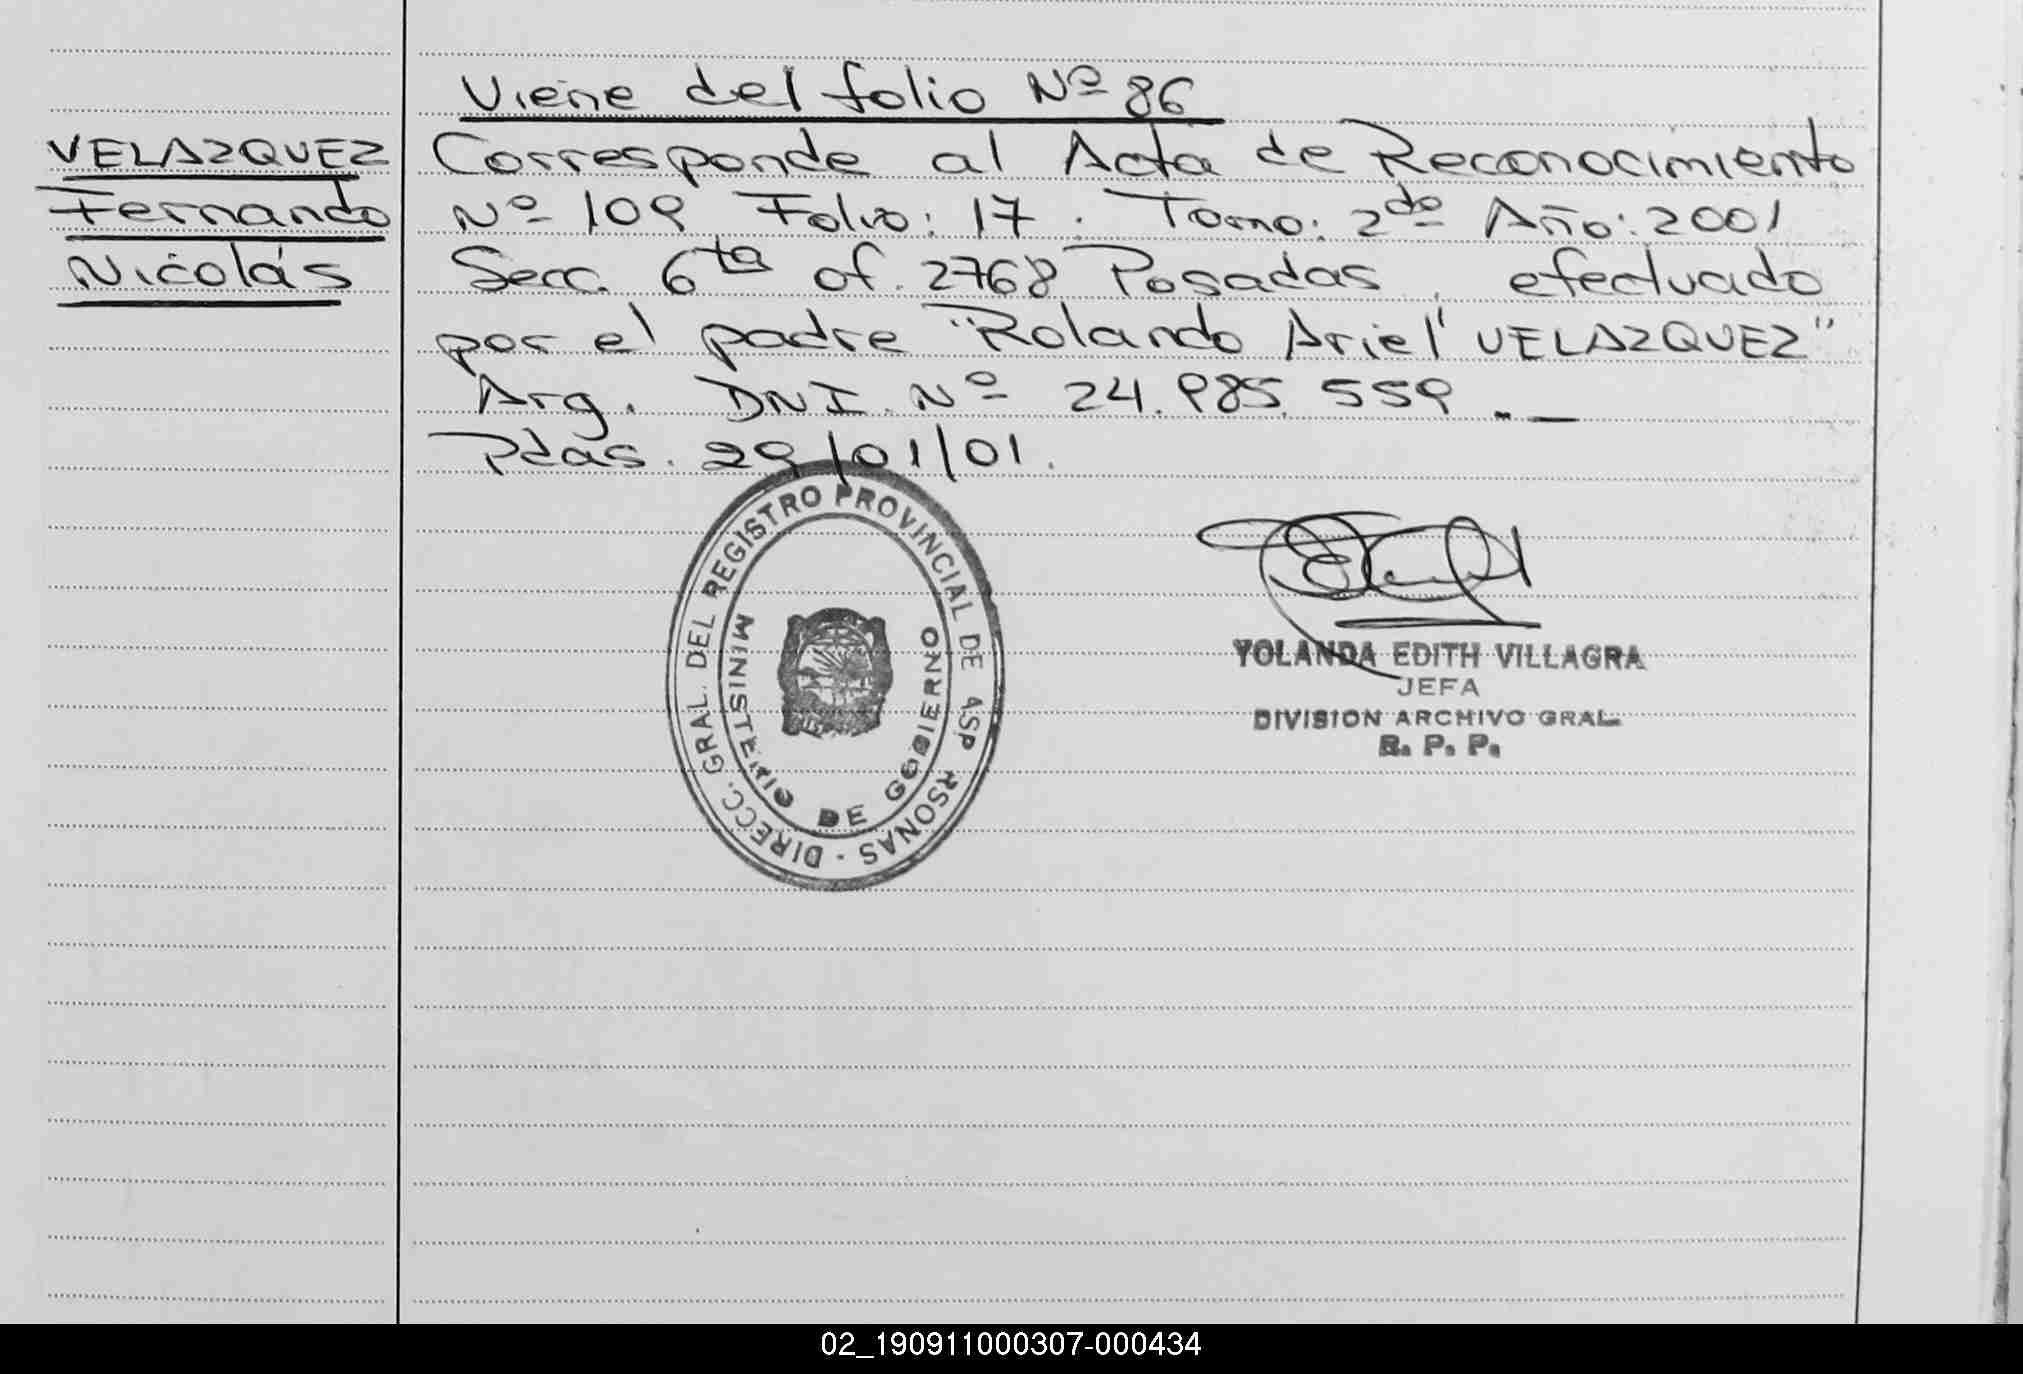 Viene del folio Nº 86
VELAZQUEZ
Fernando
Nicolás
Corresponde al Acta de Reconocimiento
Nº 109 Folio: 17. Tomo: 2do Año: 2001
Secc. 6ta of. 2768 Posadas, efectuado
por el padre "Rolando Ariel VELAZQUEZ"
Arg. DNI. Nº 24.985.559 . _
Pdas. 29/01/01.
DIRECC. GRAL. DEL REGISTRO PROVINCIAL DE AS P RSONAS -
MINISTERIO DE GOBIERNO
YOLANDA EDITH VILLAGRA
JEFA
DIVISION ARCHIVO GRAL.
R. P. P.
02_190911000307-000434